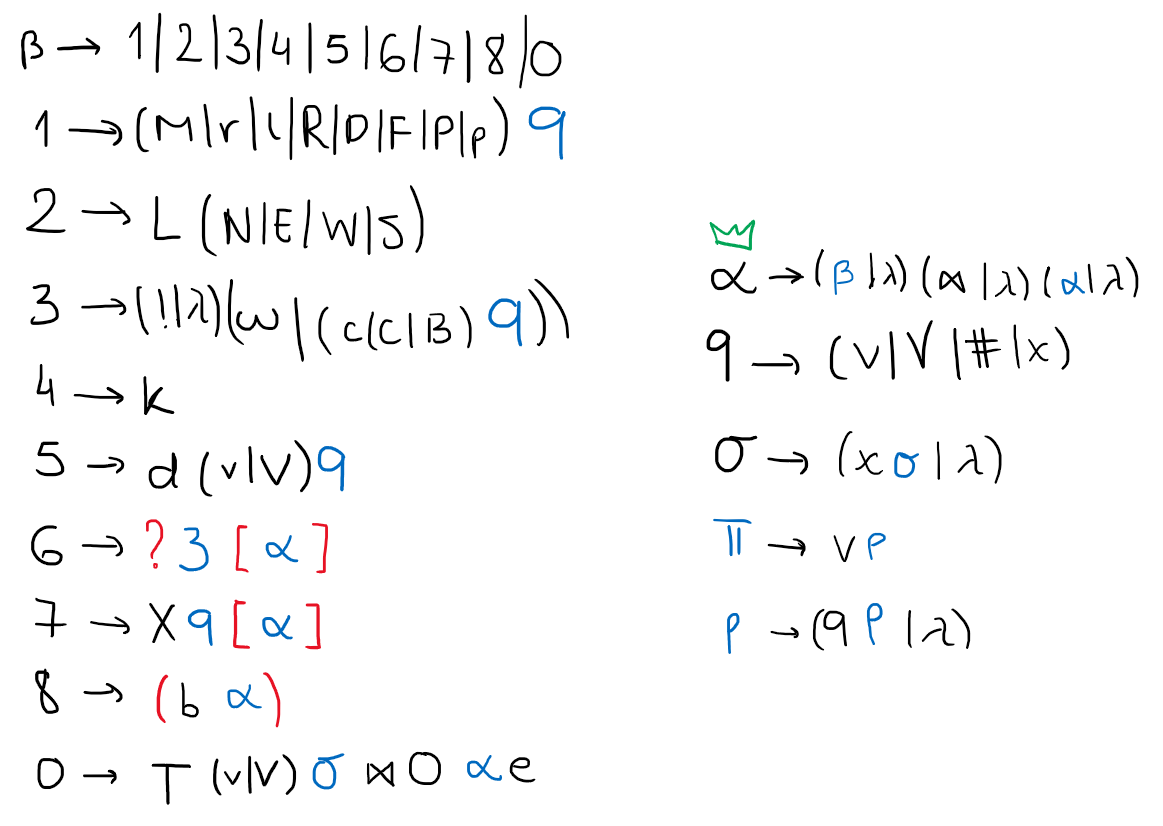 β → 1|2|3|4|5|6|7|8|0
1 → (M|r|l|R|D|F|P|p) q
2 → L (N|E|W|S)
3 → (!|λ)(w|(c|C|B) q))
4 → k
5 → d (v|V) q
6 → ? 3 [ α ]
7 → X q [ α ]
8 → (b α)
0 → T (v|V) σ ⋈ O α e
α → (β|λ) (⋈|λ) (α|λ)
q → (v|V|#|x)
σ → (x σ | λ)
π → v ρ
ρ → (q ρ | λ)